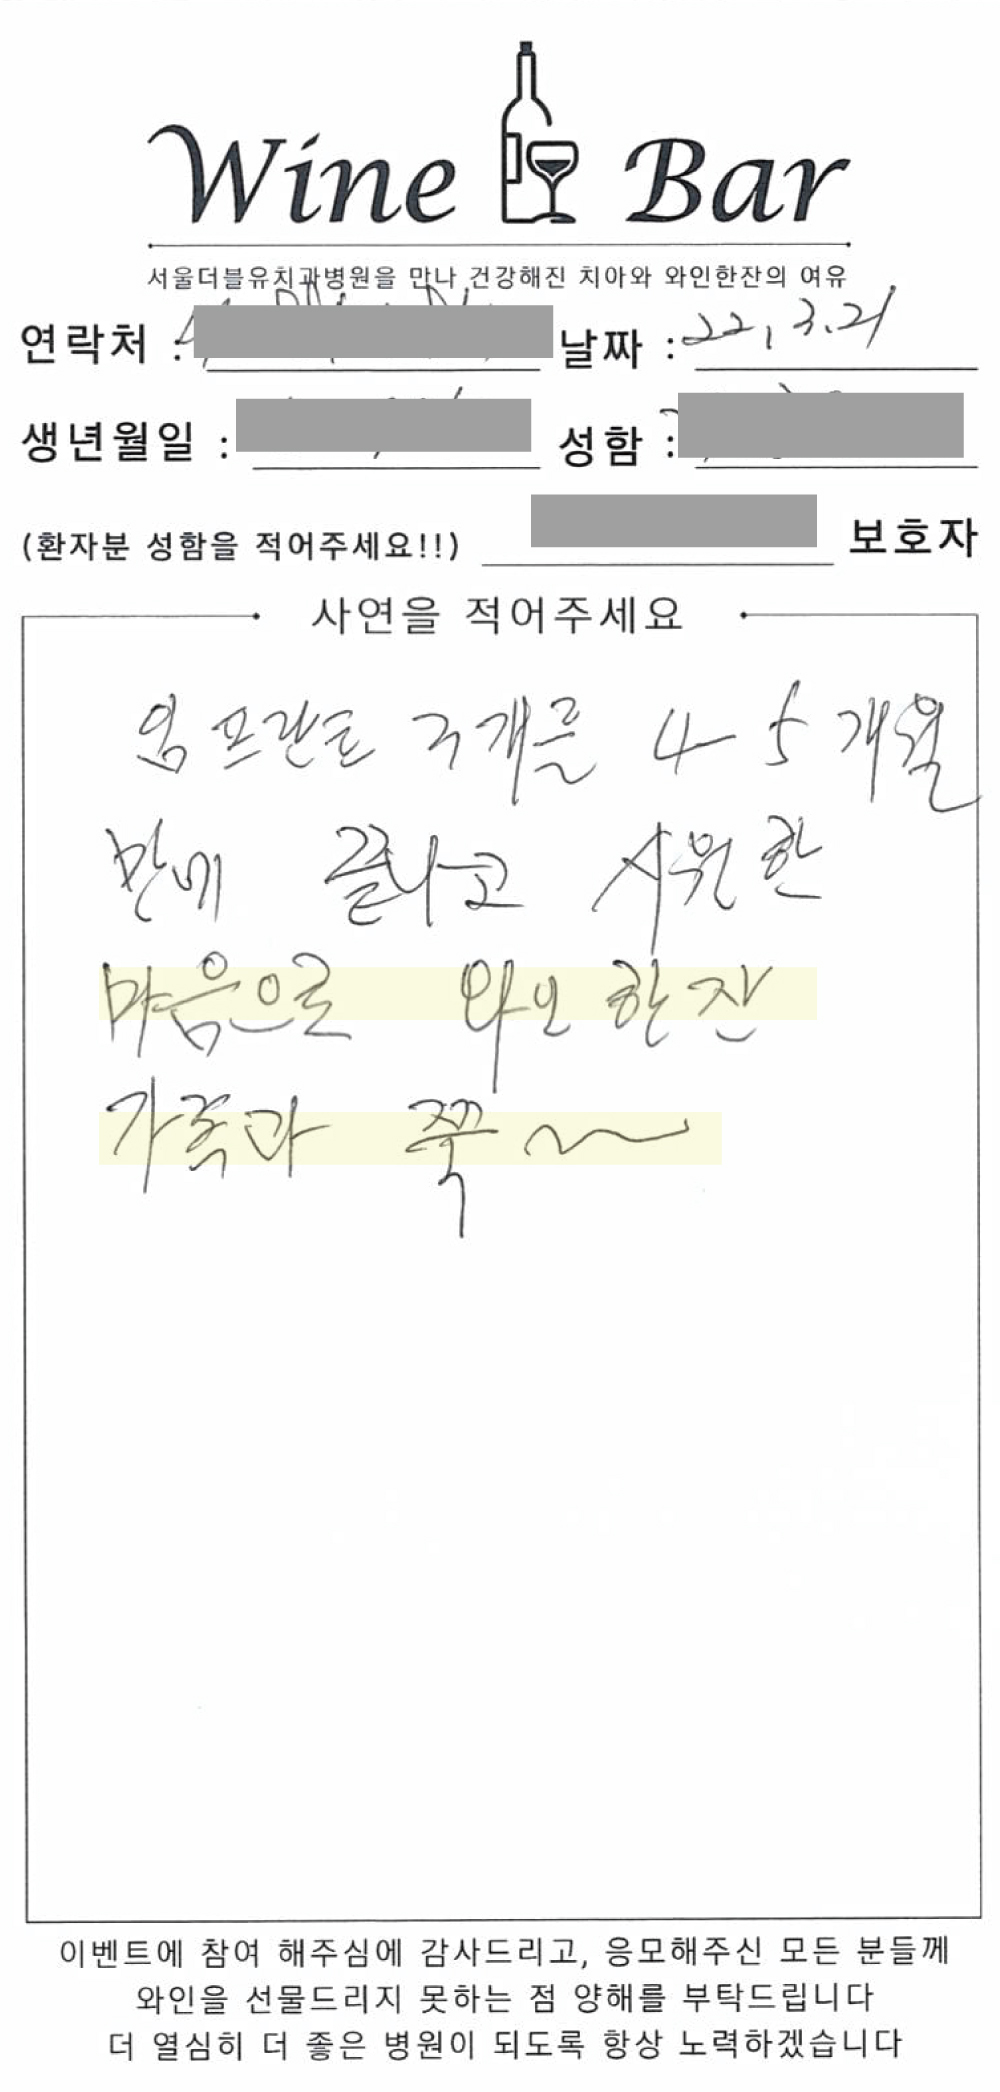 Wine Bar
서울더블유치과병원을 만나 건강해진 치아와 와인한잔의 여유
연락처 : 날짜 : 22, 3.21
생년월일 : 성함 :
(환자분 성함을 적어주세요!!) 보호자
사연을 적어주세요
임프란트 구개를 4 5 개월
만에 끝나고 시원한
마음으로 와인 한잔
가족과 쭉~
이벤트에 참여 해주심에 감사드리고, 응모해주신 모든 분들께
와인을 선물드리지 못하는 점 양해를 부탁드립니다
더 열심히 더 좋은 병원이 되도록 항상 노력하겠습니다